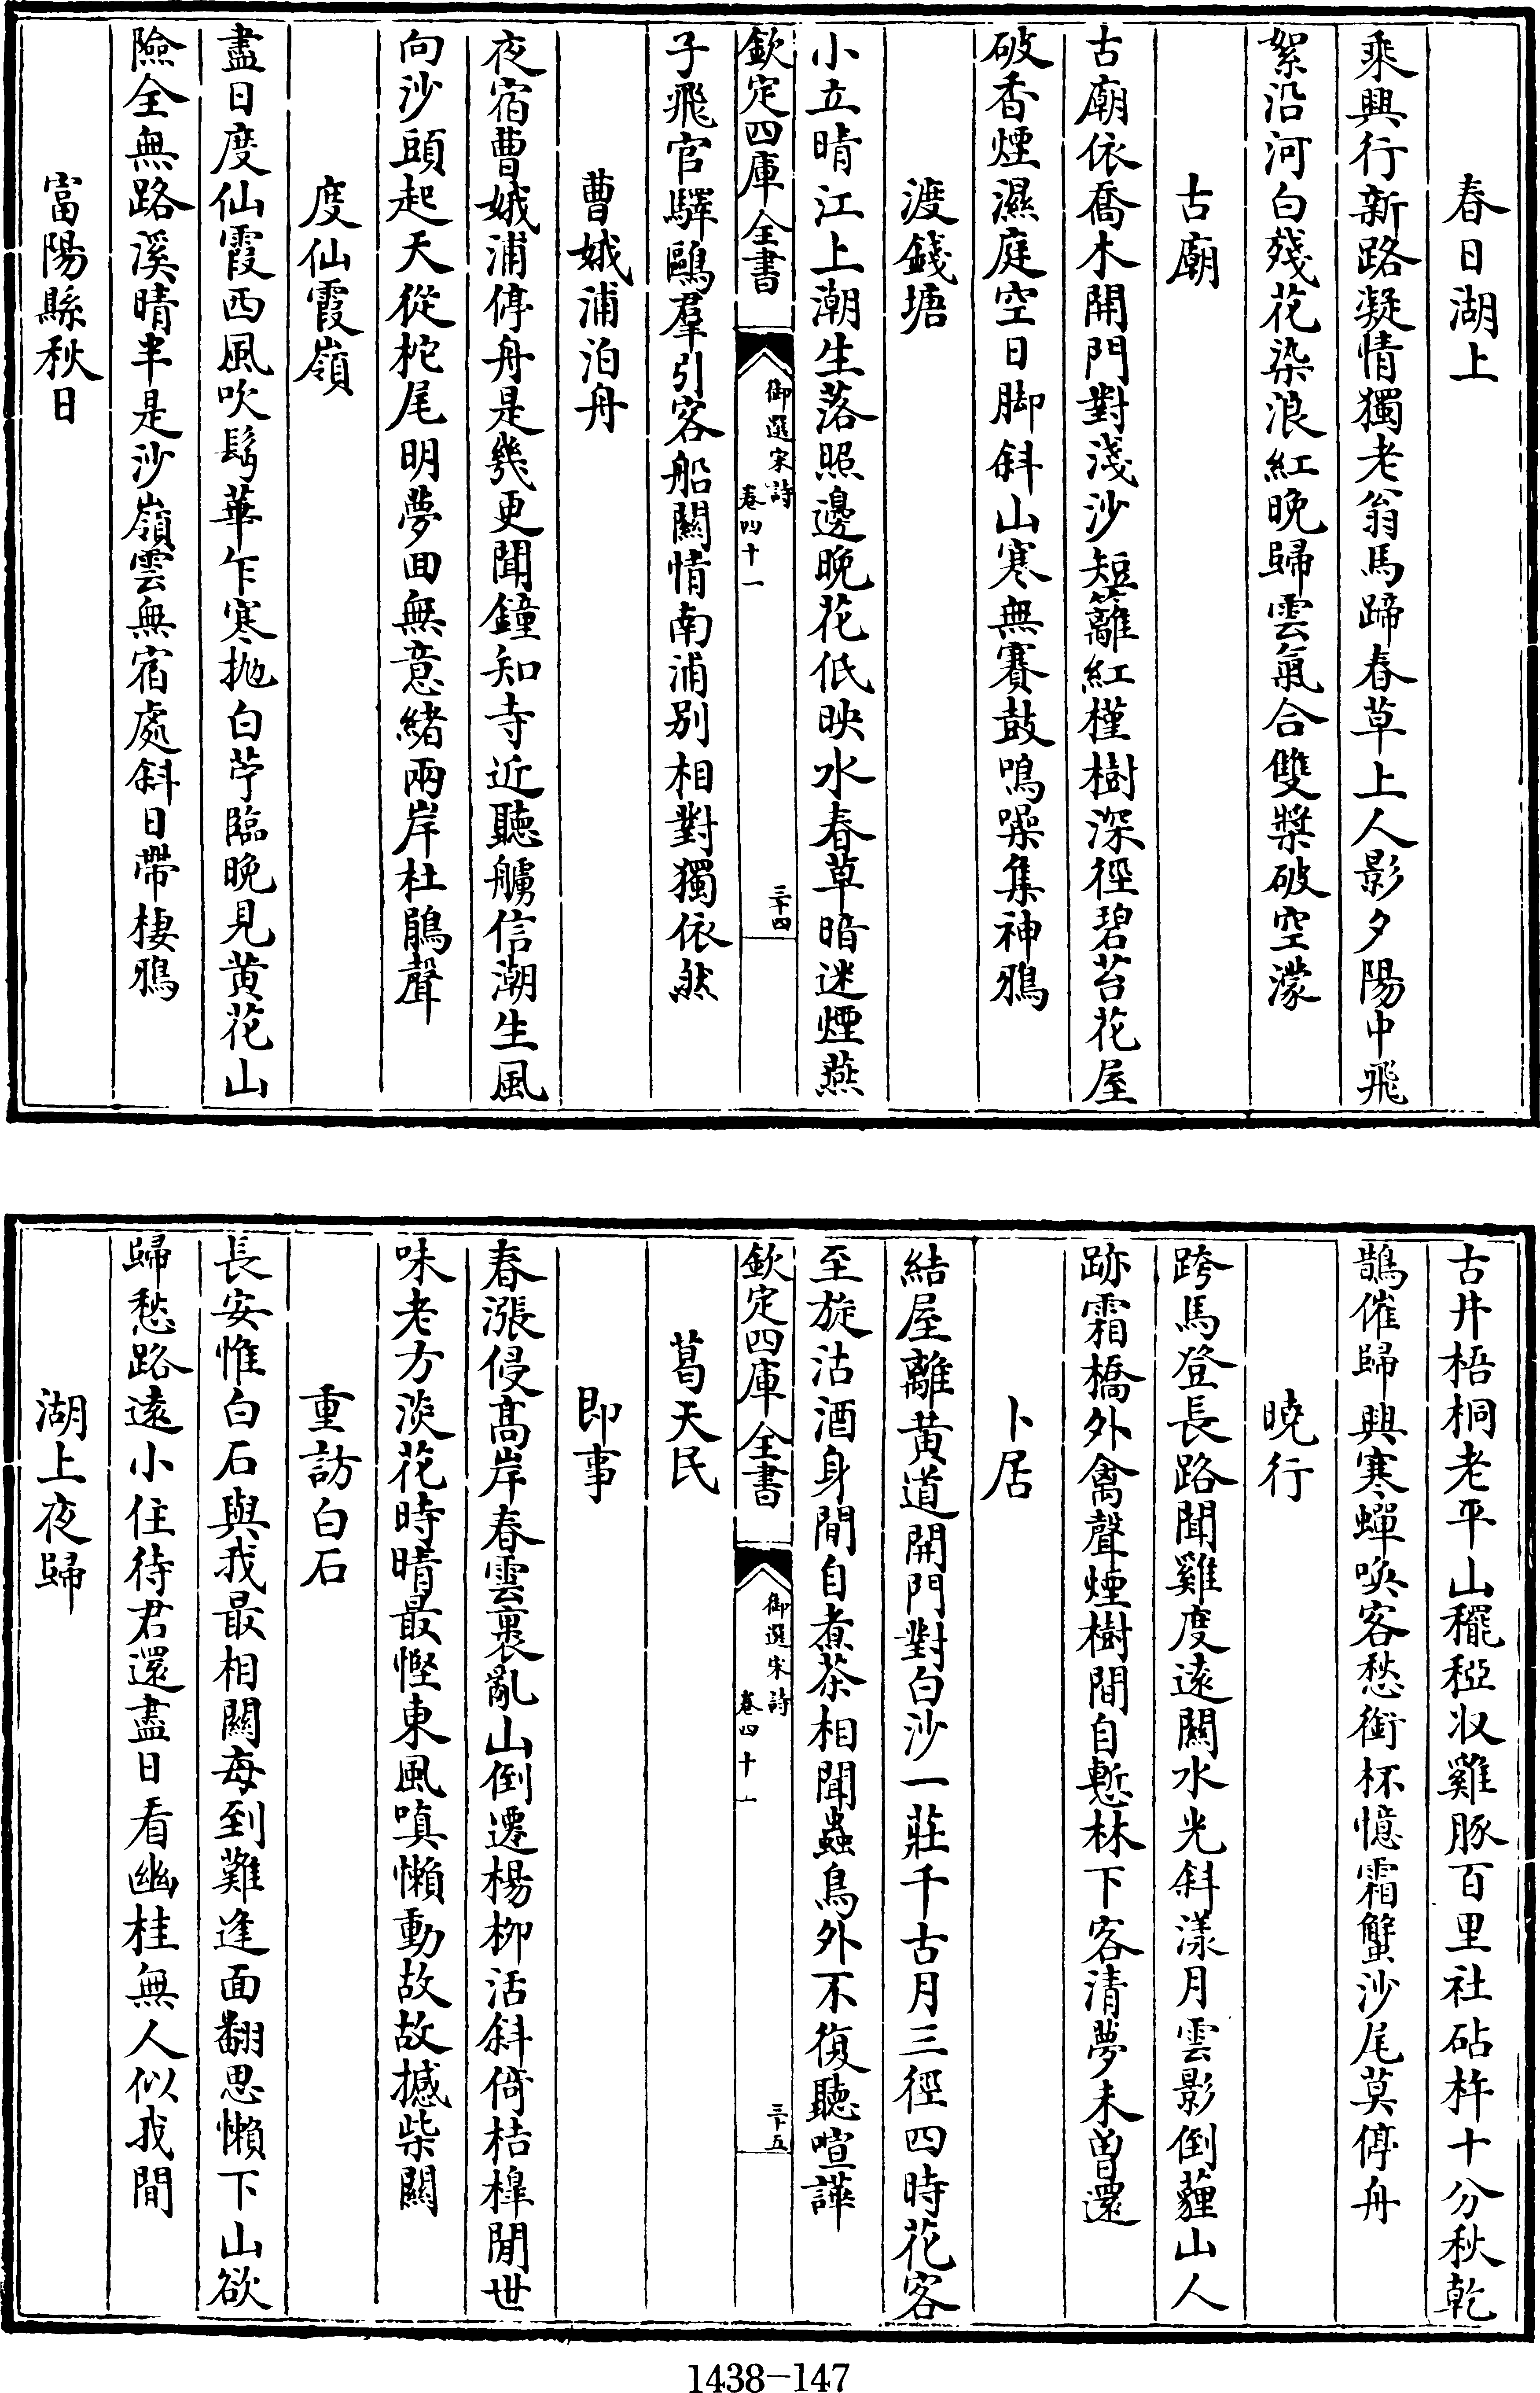 春日湖上
乘興行新路凝情獨老翁馬蹄春草上人影夕陽中飛
絮沿河白殘花染浪紅晚歸雲氣合雙槳破空濛
古廟
古廟依喬木開門對淺沙短籬紅槿樹深徑碧苔花屋
破香煙濕庭空日脚斜山寒無賽鼓鳴噪集神鴉
渡錢塘
小立晴江上潮生落照邊晚花低映水春草暗迷煙燕
欽定四庫全書
御選宋詩
卷四十一
三十四
子飛官驛鷗羣引客船關情南浦別相對獨依然
曹娥浦泊舟
夜宿曹娥浦停舟是幾更聞鐘知寺近聽艣信潮生風
向沙頭起天從柁尾明夢回無意緒兩岸杜鵑聲
度仙霞嶺
盡日度仙霞西風吹鬂華乍寒拋白苧臨晚見黄花山
險全無路溪晴半是沙嶺雲無宿處斜日帶棲鴉
富陽縣秋日
古井梧桐老平山䆉稏收雞豚百里社砧杵十分秋乾
鵲催歸興寒蟬喚客愁銜杯憶霜蟹沙尾莫停舟
曉行
跨馬登長路聞雞度遠關水光斜漾月雲影倒藏山人
跡霜橋外禽聲煙樹間自慙林下客清夢未曽還
卜居
結屋離黄道開門對白沙一莊千古月三徑四時花客
至旋沽酒身閒自煮茶相聞蟲鳥外不復聽喧譁
欽定四庫全書
御選宋詩
卷四十一
三十五
葛天民
即事
春漲侵高岸春雲裹亂山倒遷楊栁活斜倚桔槹閒世
味老方淡花時晴最慳東風嗔懶動故故撼柴關
重訪白石
長安惟白石與我最相關每到難逢面翻思懶下山欲
歸愁路遠小住待君還盡日看幽桂無人似我閒
湖上夜歸
1438-147